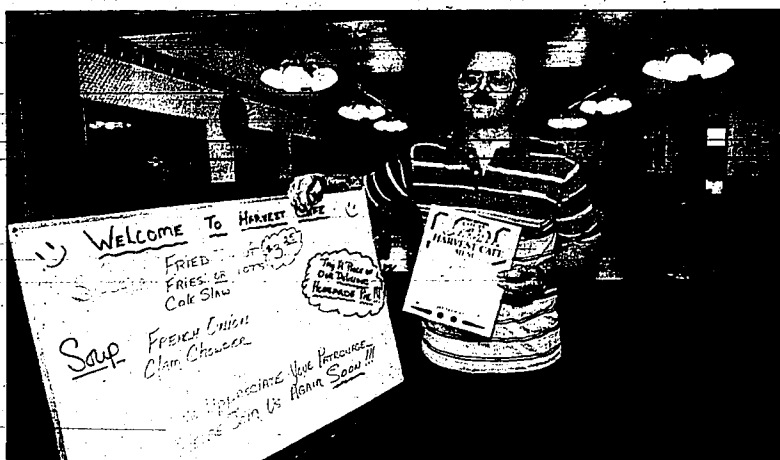 WELCOME TO HARVEST CAFE
FRIED $3.25
FRIES OR TOTS
COLE SLAW
TRY A PIECE OF
OUR DELICIOUS
HOMEMADE PIE!!
SOUP FRENCH ONION
CLAM CHOWDER
APPRECIATE YOUR PATRONAGE
PLEASE JOIN US AGAIN SOON!!!
HARVEST CAFE
MENU